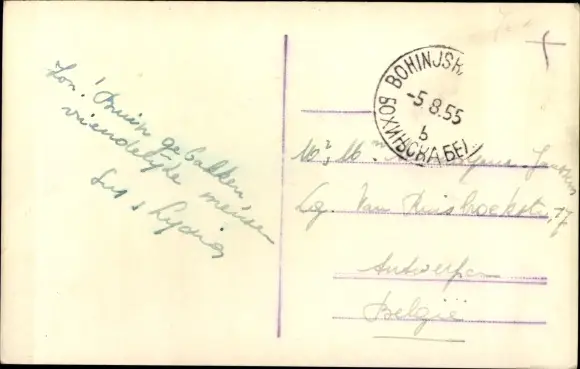 Zon! Bruin gebakken,
vriendelijke mensen
Luc & Lydia
BOHINJSKA
-5.8.55
b
БОХИЊСКА БЕЛА
Mr, Mm
Lg. Van Ruusbroekstr, 17
Antwerpen
België